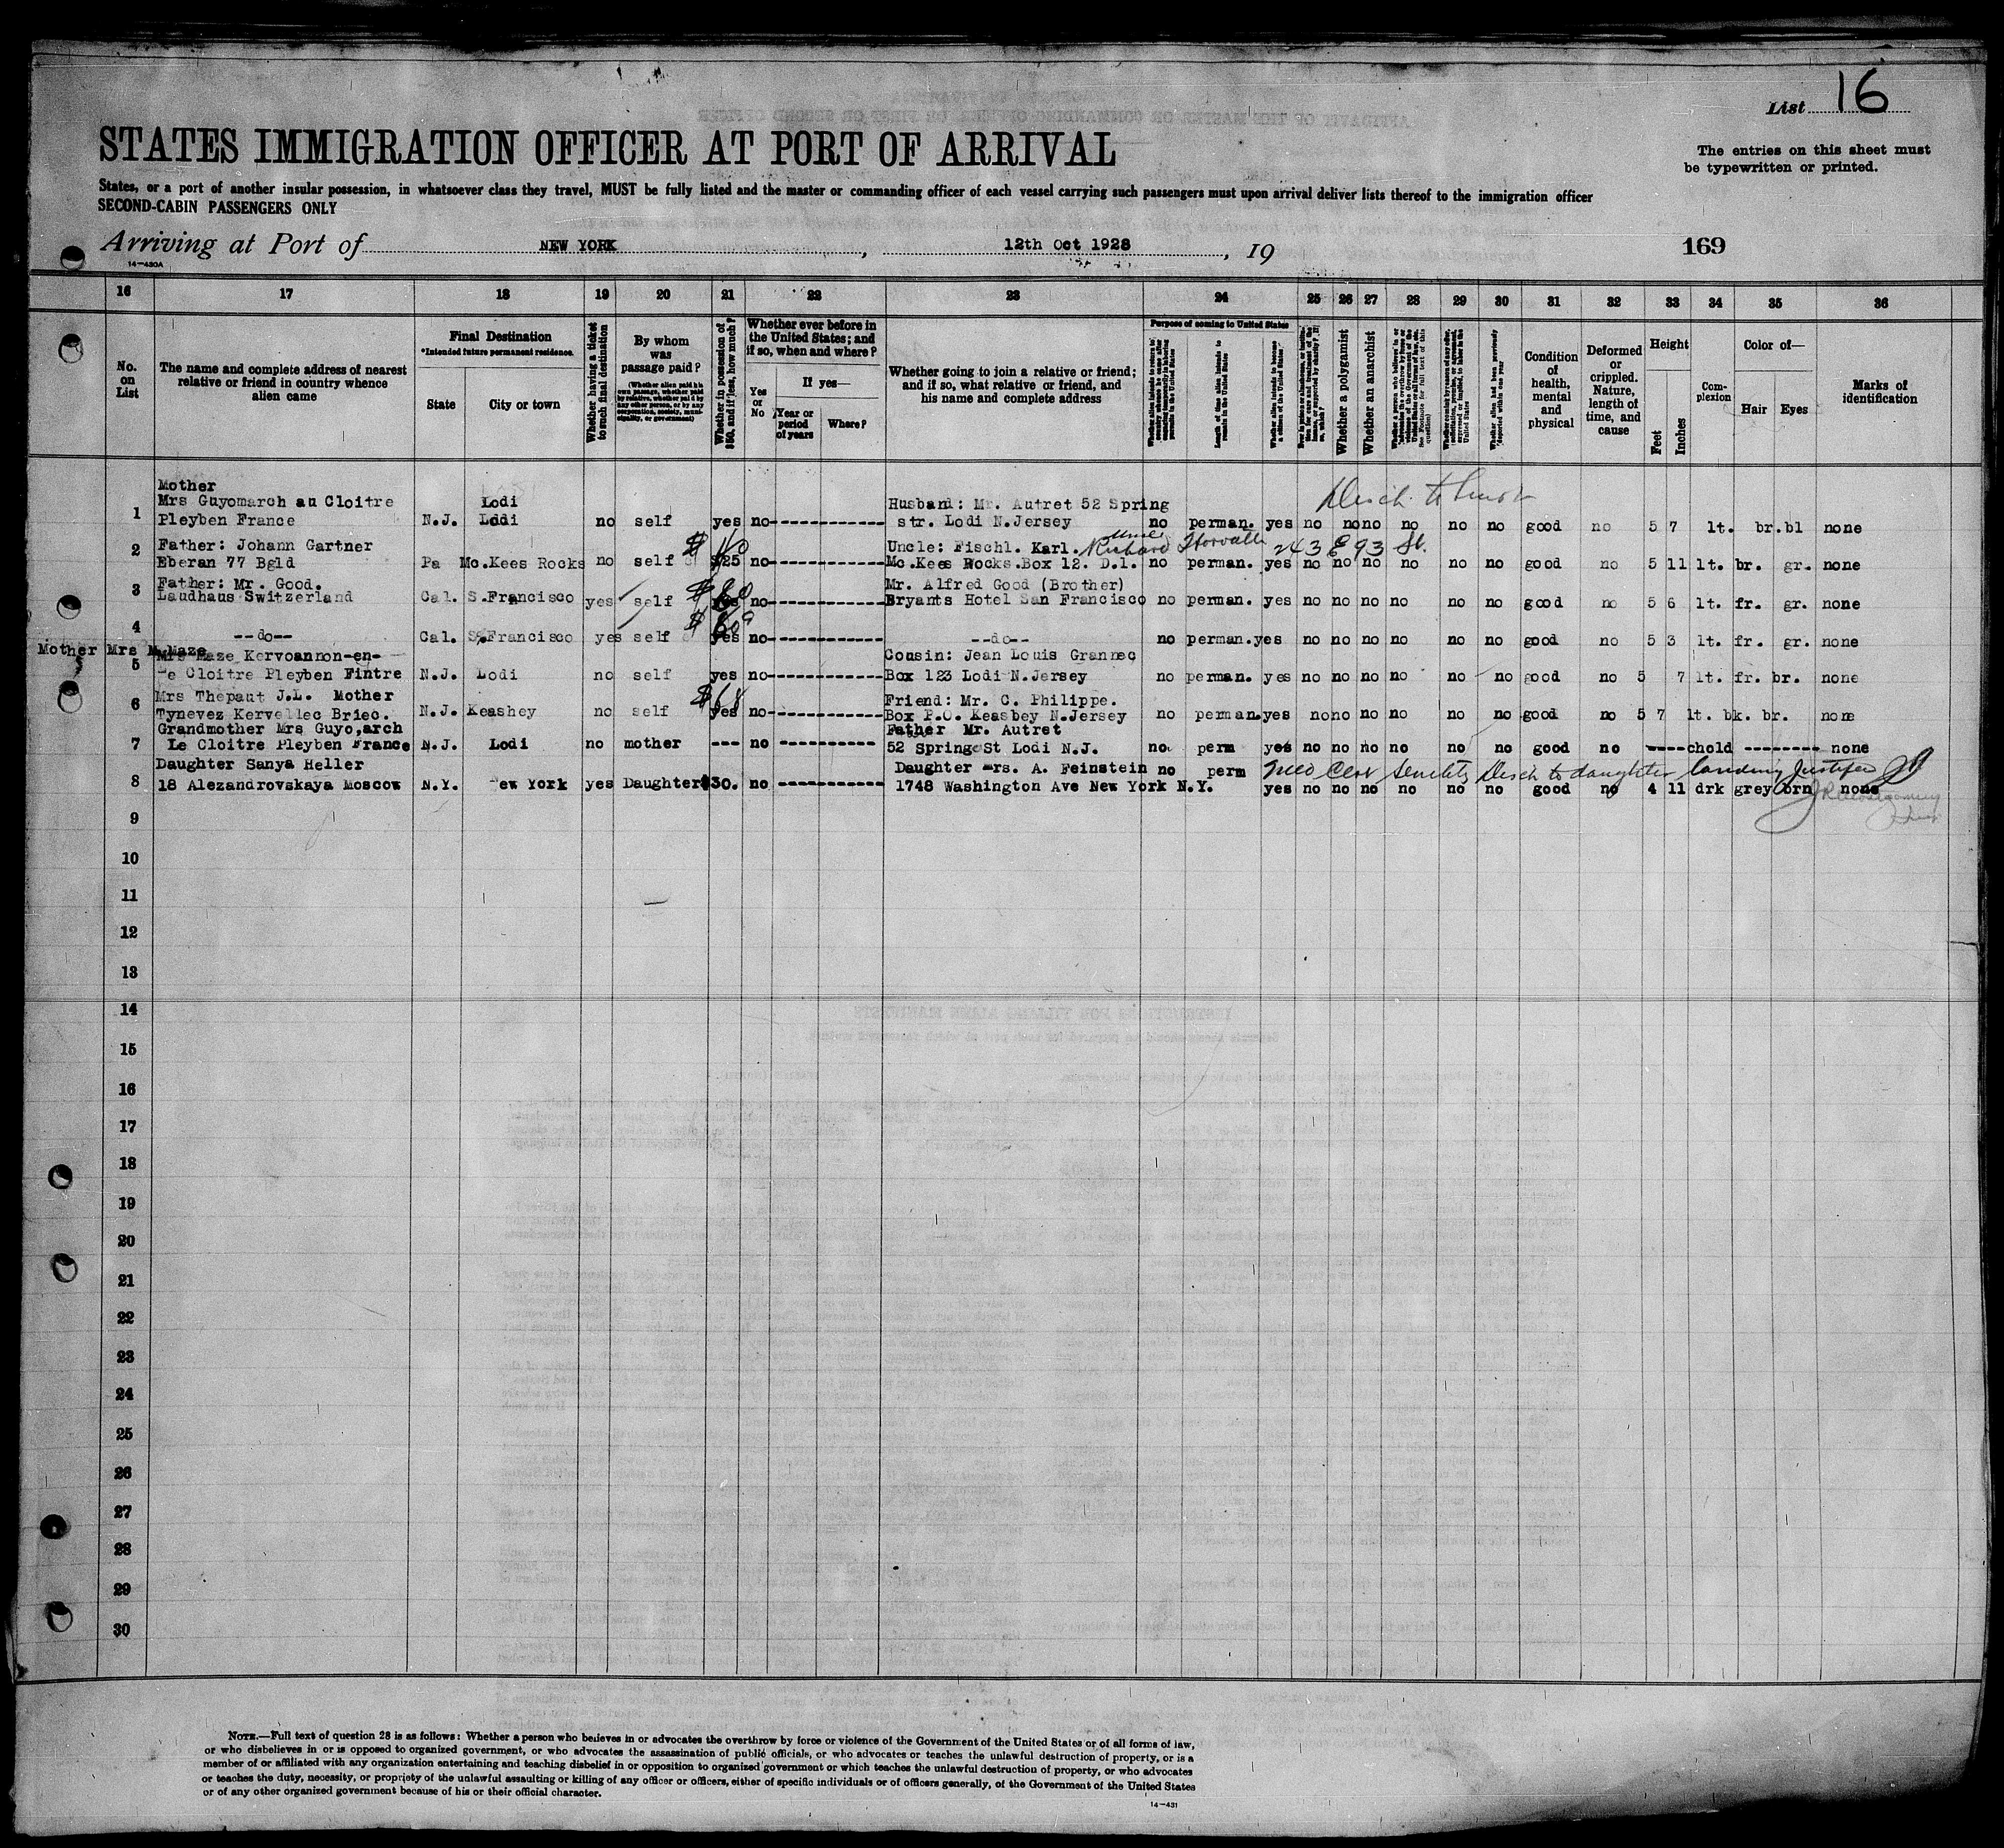 List 16
STATES IMMIGRATION OFFICER AT PORT OF ARRIVAL
The entries on this sheet must
be typewritten or printed.
States, or a port of another insular possession, in whatsoever class they travel, MUST be fully listed and the master or commanding officer of each vessel carrying such passengers must upon arrival deliver lists thereof to the immigration officer
SECOND-CABIN PASSENGERS ONLY
Arriving at Port of NEW YORK, 12th Oct 1928, 19
169
14-430A
16 17 18 19 20 21 22 23 24 25 26 27 28 29 30 31 32 33 34 35 36
No. on List
The name and complete address of nearest relative or friend in country whence alien came
Final Destination
*Intended future permanent residence.
State
City or town
Whether having a ticket to such final destination
By whom was passage paid?
(Whether alien paid his own passage, whether paid by relative, whether paid by any other person, or by any corporation, society, municipality, or government)
Whether in possession of $50, and if less, how much?
Whether ever before in the United States; and if so, when and where?
Yes or No
If yes—
Year or period of years
Where?
Whether going to join a relative or friend; and if so, what relative or friend, and his name and complete address
Purpose of coming to United States
Length of time alien intends to remain in the United States
Whether alien intends to become a citizen of the United States
Whether a polygamist
Whether an anarchist
Whether alien had been previously deported within one year
Condition of health, mental and physical
Deformed or crippled. Nature, length of time, and cause
Height
Feet
Inches
Complexion
Color of—
Hair
Eyes
Marks of identification
Mother
Mrs Guyomarch au Cloitre Lodi Husband: Mr. Autret 52 Spring
1 Pleyben France N.J. Lodi no self yes no------------ str. Lodi N.Jersey no perman. yes no no no no no no good no 5 7 lt. br. bl none
2 Father: Johann Gartner Uncle: Fischl. Karl. Uncle Richard Horvath 243 E 93 St.
Eberan 77 Bgld Pa Mc.Kees Rocks no self $25 no------------ Mc.Kees Rocks.Box 12. D.1. no perman. yes no no no no no no good no 5 11 lt. br. gr. none
3 Father: Mr. Good. Mr. Alfred Good (Brother)
Laudhaus Switzerland Cal. S.Francisco yes self $80 yes no------------ Bryants Hotel San Francisco no perman. yes no no no no no no good no 5 6 lt. fr. gr. none
4 --do-- Cal. S.Francisco yes self yes no------------ --do-- no perman. yes no no no no no no good no 5 3 lt. fr. gr. none
Mother Mrs M.Maze
5 Mrs Maze Kervoannon-en- Cousin: Jean Louis Grannec
Le Cloitre Pleyben Fintre N.J. Lodi no self yes no------------ Box 123 Lodi N.Jersey no perman. yes no no no no no no good no 5 7 lt. fr. br. none
6 Mrs Thepaut J.L. Mother $68 Friend: Mr. C. Philippe.
Tynevez Kervellec Briec. N.J. Keashey no self yes no------------ Box P.O. Keasbey N.Jersey no perman. yes no no no no no no good no 5 7 lt. bk. br. none
Grandmother Mrs Guyo,arch Father Mr. Autret
7 Le Cloitre Pleyben France N.J. Lodi no mother --- no ---------- 52 Spring St Lodi N.J. no perm yes no no no no no no good no ----chold -------- none
Daughter Sanya Heller Daughter Mrs. A. Feinstein no perm Med Cert Senility Disch to daughter landing justified
8 18 Alezandrovskaya Moscow N.Y. New York yes Daughter $30. no ---------- 1748 Washington Ave New York N.Y. yes no no no no no no good no 4 11 drk grey brn none
9
10
11
12
13
14
15
16
17
18
19
20
21
22
23
24
25
26
27
28
29
30
NOTE.—Full text of question 28 is as follows: Whether a person who believes in or advocates the overthrow by force or violence of the Government of the United States or of all forms of law,
or who disbelieves in or is opposed to organized government, or who advocates the assassination of public officials, or who advocates or teaches the unlawful destruction of property, or is a
member of or affiliated with any organization entertaining and teaching disbelief in or opposition to organized government or which teaches the unlawful destruction of property, or who advocates
or teaches the duty, necessity, or propriety of the unlawful assaulting or killing of any officer or officers, either of specific individuals or of officers generally, of the Government of the United States
or of any other organized government because of his or their official character.
14-431